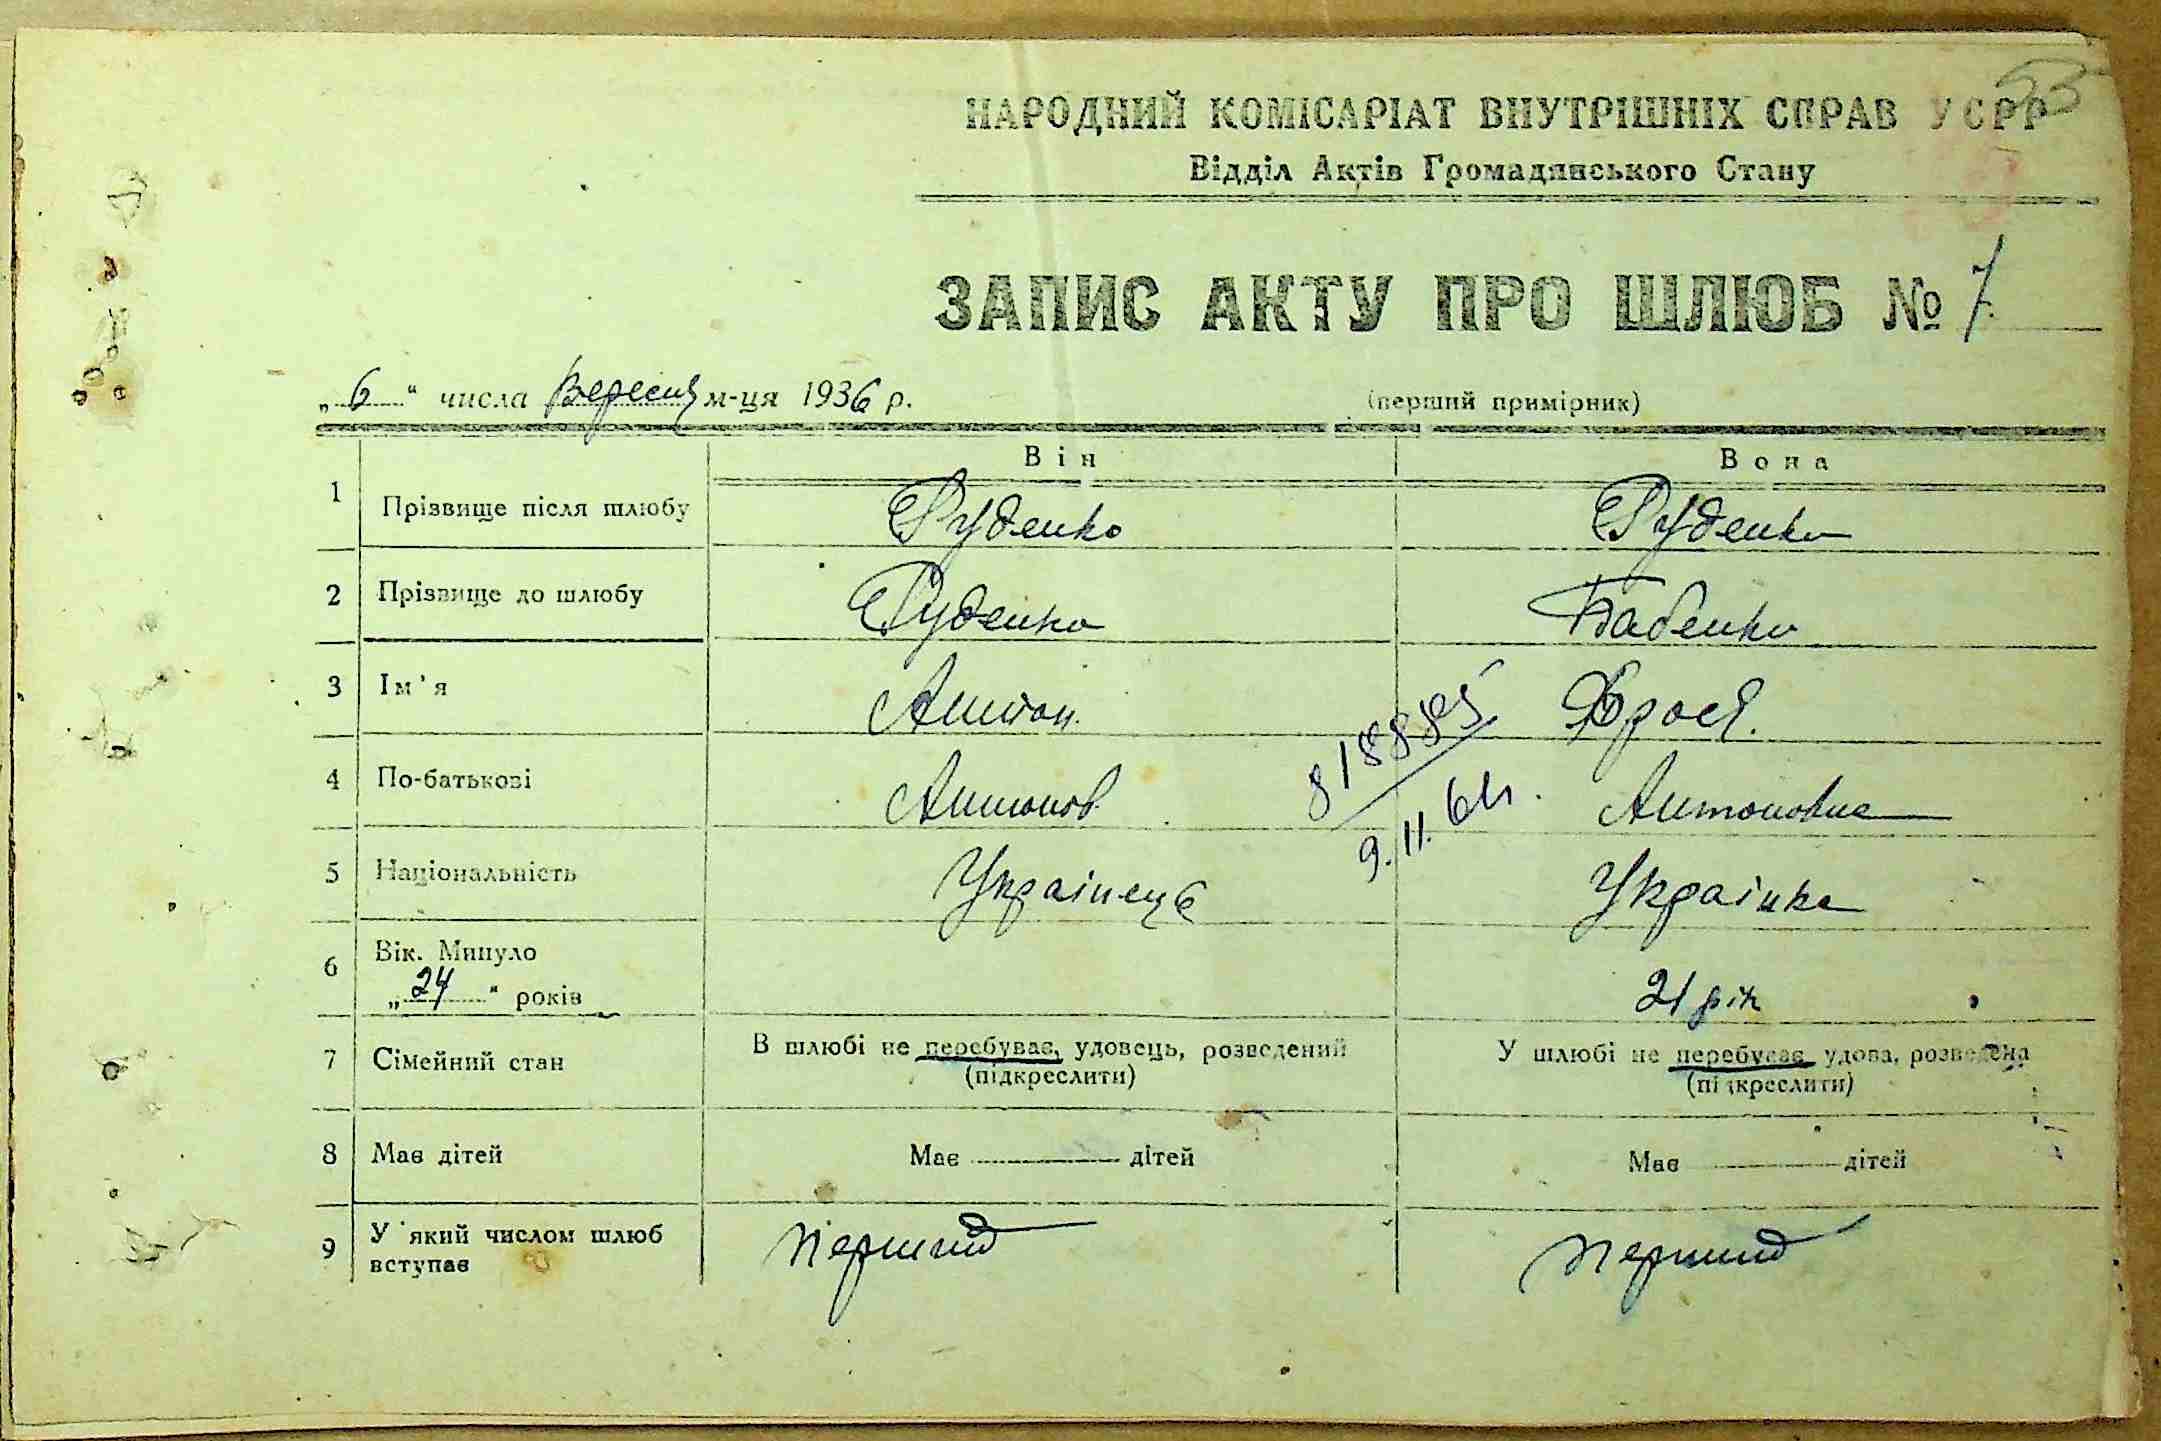 53
НАРОДНИЙ КОМІСАРІАТ ВНУТРІШНІХ СПРАВ УСРР
Відділ Актів Громадянського Стану
ЗАПИС АКТУ ПРО ШЛЮБ № 7
„6" числа Вересня м-ця 1936 р. (перший примірник)
Він Вона
1 Прізвище після шлюбу Руденко Руденко
2 Прізвище до шлюбу Руденко Бабенко
3 Ім'я Антон. Фрося.
4 По-батькові Антонов. Антоновна
818885
9.11.61
5 Національність Українець Українка
6 Вік. Минуло
„24" років 21 рік
7 Сімейний стан В шлюбі не перебуває, удовець, розведений У шлюбі не перебуває удова, розведена
(підкреслити) (підкреслити)
8 Має дітей Має дітей Має дітей
9 У який числом шлюб
вступає перший перший